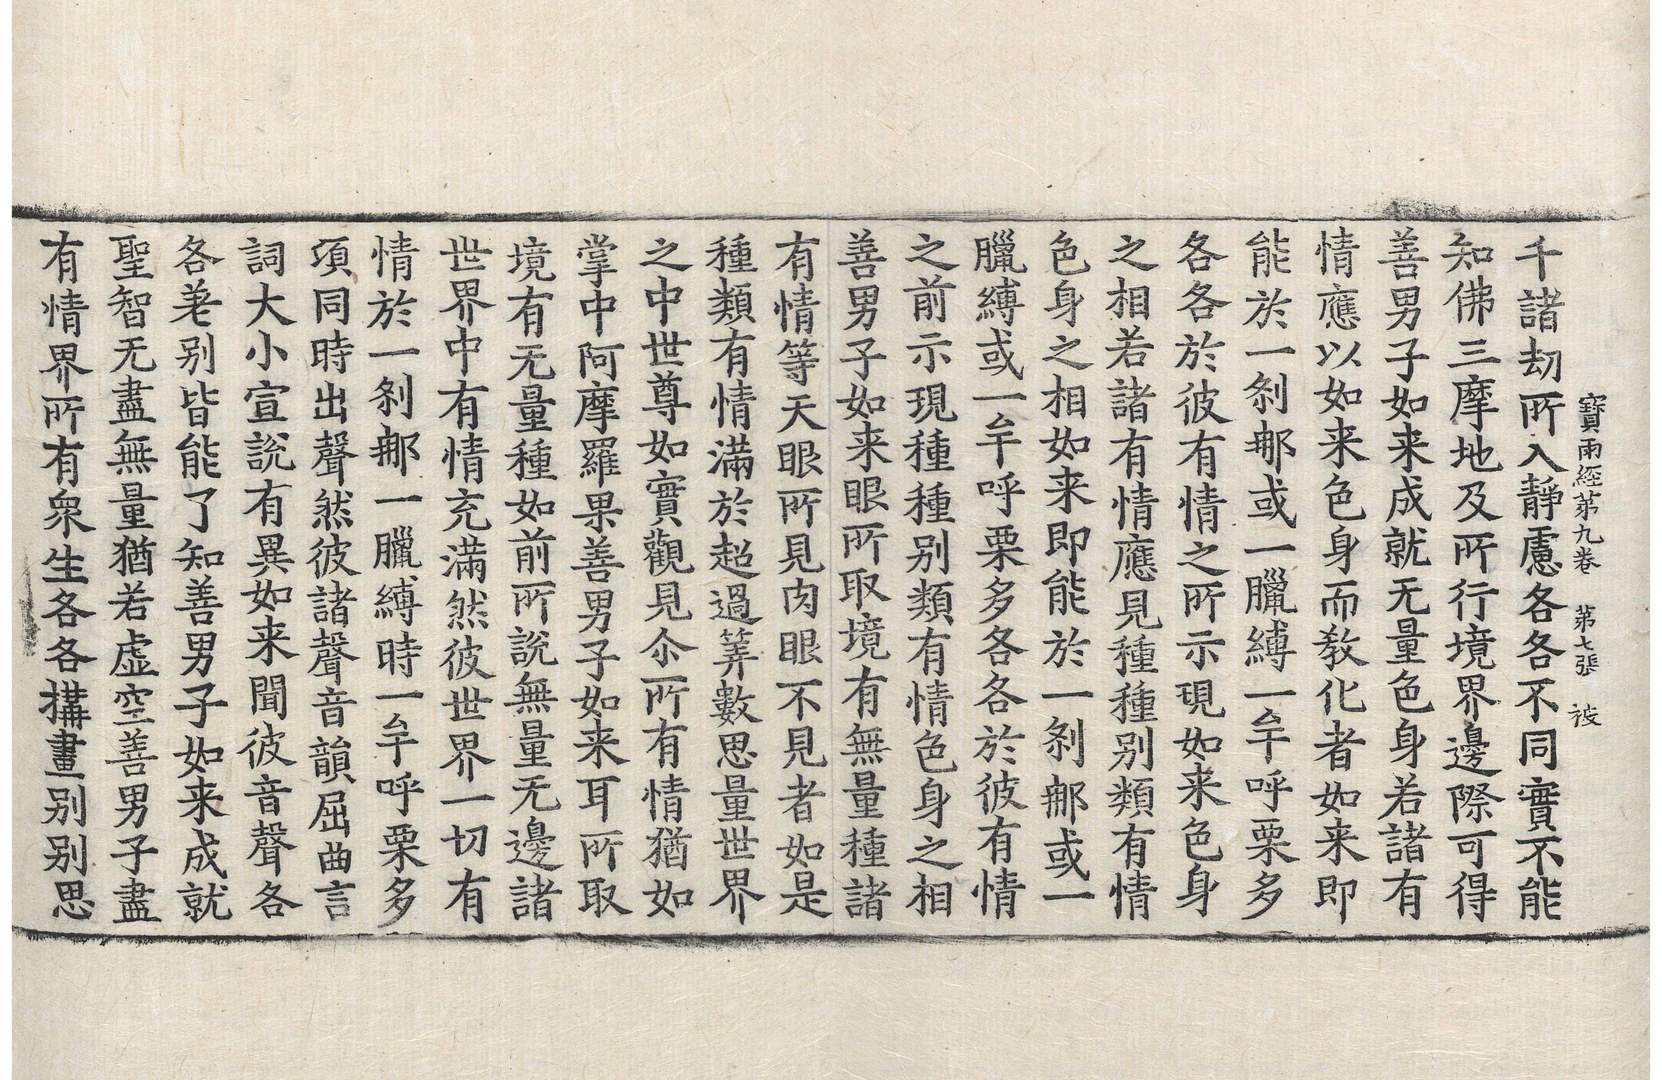 寶雨經第九卷 第七張 被
千諸劫所入靜慮各各不同實不能
知佛三摩地及所行境界邊際可得
善男子如来成就无量色身若諸有
情應以如来色身而教化者如来即
能於一刹那或一臘縛一牟呼栗多
各各於彼有情之所示現如来色身
之相若諸有情應見種種別類有情
色身之相如来即能於一刹那或一
臘縛或一牟呼栗多各各於彼有情
之前示現種種別類有情色身之相
善男子如来眼所取境有無量種諸
有情等天眼所見肉眼不見者如是
種類有情滿於超過筭數思量世界
之中世尊如實觀見尒所有情猶如
掌中阿摩羅果善男子如来耳所取
境有无量種如前所說無量无邊諸
世界中有情充滿然彼世界一切有
情於一刹那一臘縛時一牟呼栗多
頃同時出聲然彼諸聲音韻屈曲言
詞大小宣說有異如来聞彼音聲各
各差別皆能了知善男子如来成就
聖智无盡無量猶若虛空善男子盡
有情界所有衆生各各搆畫別別思